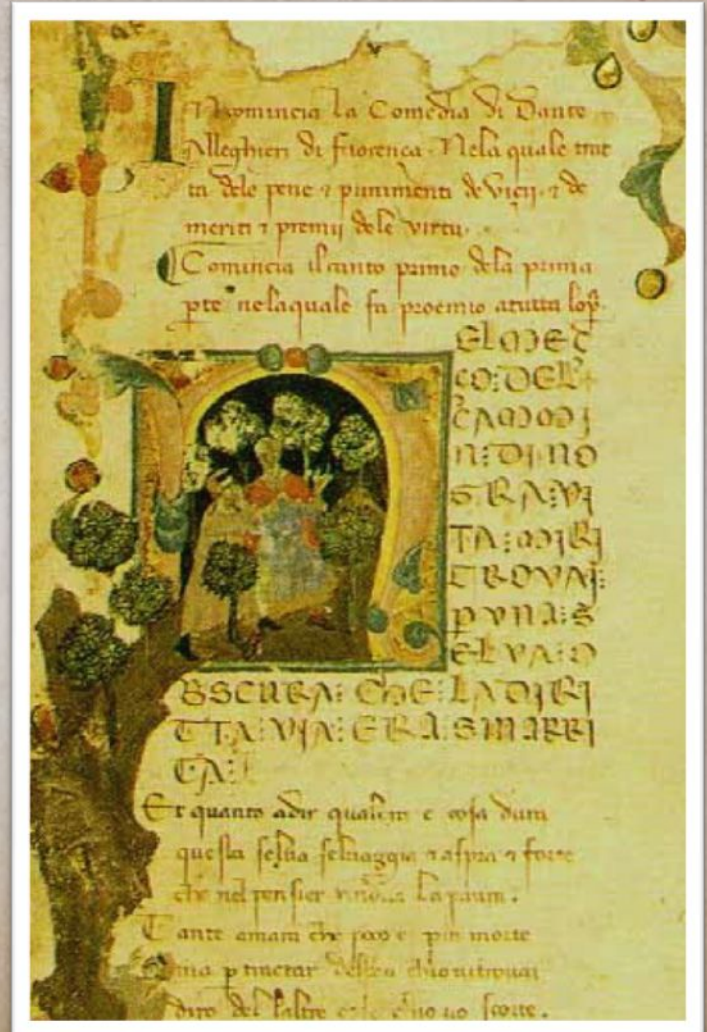 Incomincia la Comedia di Dante
Alleghieri di fiorenca. Nela quale trat
ta dele pene ⁊ punimenti de vicij. ⁊ de
meriti ⁊ premij dele virtu.
Comincia il canto primo dela prima
pte nelaquale fa proemio atutta lop̄.
EL MEÇ
ÇO: DEL
CAMMI
N: DI NO
STRA: VI
TA: MI RI
TROVAI:
P VNA: S
ELVA: O
BSCURA: CHE: LA DIRI
TTA: VIA: ERA: SMARRI
TA:
Et quanto adir qual era e cosa dura
questa selua seluaggia ⁊ aspra ⁊ forte
che nel pensier la paura.
Tante amara che poco e piu morte
ma p tractar
diro del laltre chio uo scorte.